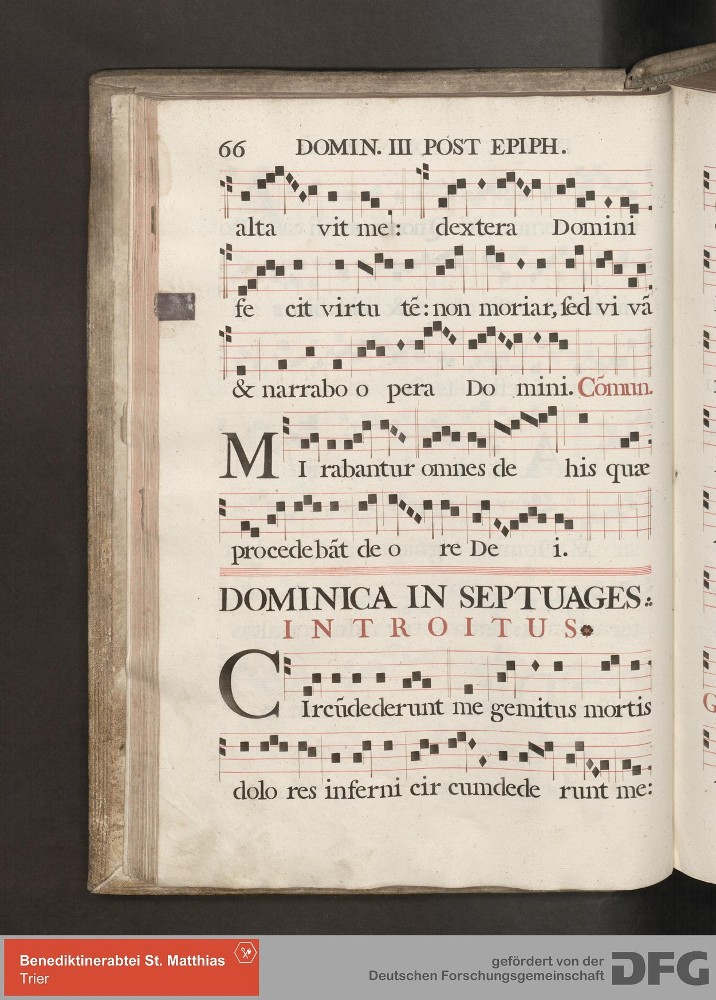 66 DOMIN. III POST EPIPH.
alta vit me: dextera Domini
fe cit virtu tẽ: non moriar, sed vi vã
& narrabo o pera Do mini. Cõmun.
MI rabantur omnes de his quæ
procedebãt de o re De i.
DOMINICA IN SEPTUAGES.
INTROITUS
CIrcũdederunt me gemitus mortis
dolo res inferni cir cumdede runt me:
Benediktinerabtei St. Matthias
Trier
gefördert von der
Deutschen Forschungsgemeinschaft
DFG